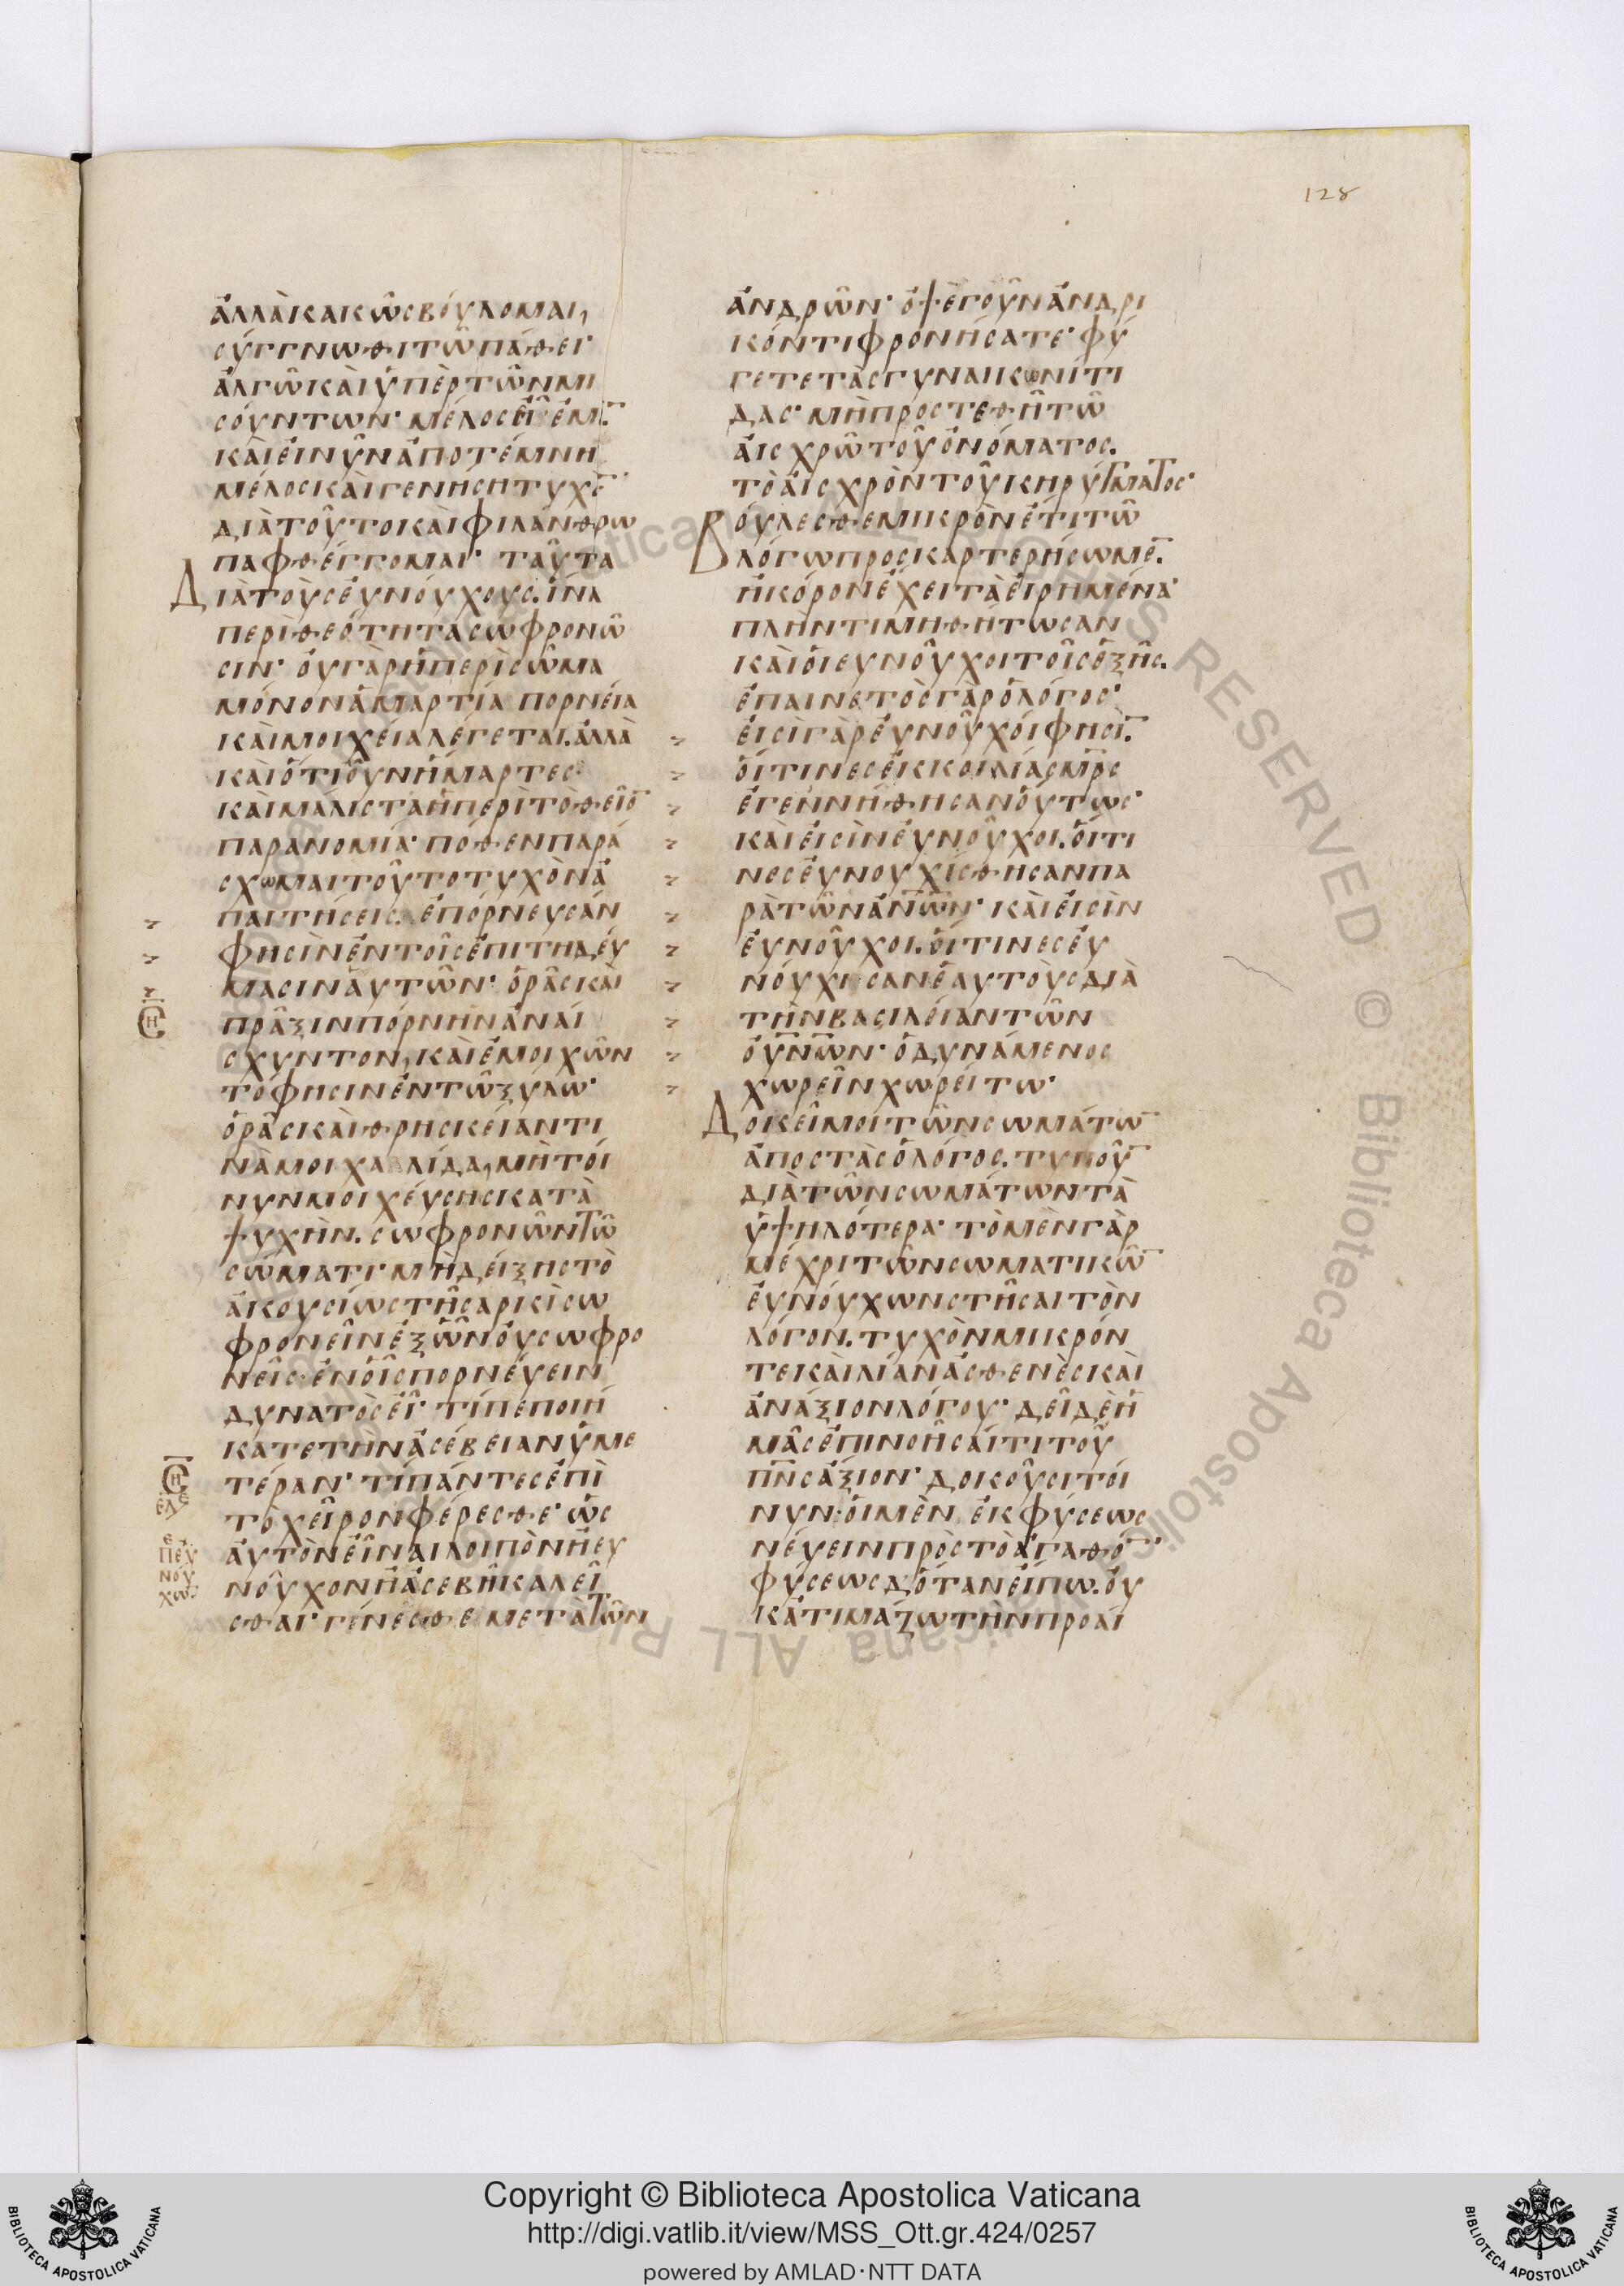 128
ἀλλὰ κακῶς βούλομαι,
σύγγνωθι τῷ πάθει·
ἀλγῶ καὶ ὑπὲρ τῶν μι
σούντων· μέλος εἶ ἐμό̅.
καὶ εἰ νῦν ἀποτέμνη
μέλος καὶ γενήση τυχὸ̅
διὰ τοῦτο καὶ φιλάνθρω
πα φθέγγομαι· ταῦτα
Διὰ τοὺς εὐνούχους. ἵνα
περὶ θεότητα σωφρονῶ
σιν· οὐ γὰρ ἡ περὶ σῶμα
μόνον ἁμαρτία πορνεία
καὶ μοιχεία λέγεται. ἀλλὰ
καὶ ὅτι οὖν ἥμαρτες·
καὶ μάλιστα ἡ περὶ τὸ θεῖο̅
παρανομία· πόθεν παρά
σχωμαι τοῦτο τυχὸν ἀ
παιτήσεις. ἐπόρνευσάν
φησὶν ἐν τοῖς ἐπιτηδεύ
μασιν αὐτῶν· ὁρᾶς καὶ
πρᾶξιν πόρνην ἀναί
σχυντον, καὶ ἐμοιχῶν
το φησιν ἐν τῷ ξύλω·
ὁρᾶς καὶ θρησκείαν τι
νὰ μοιχαλίδα, μὴ τοί
νυν μοιχεύσης κατὰ
ψυχὴν. σωφρονῶν τῶ
σώματι· μὴ δείξης τὸ
ἀκουσίως τῆ σαρκὶ σω
φρονεῖν ἐξ ὧν οὐ σωφρο
νεῖς. ἐν οἷς πορνεύειν
δυνατὸς εἶ· τί πεποιή
κατε τὴν ἀσέβειαν ὑμε
τέραν· τί πάντες ἐπὶ
τὸ χεῖρον φέρεσθε· ὡς
αὐτὸν εἶναι λοιπὸν ἢ εὐ
νοῦχον ἢ ἀσεβῆ καλεῖ
σθαι· γίνεσθε μετὰ τῶν
ἀνδρῶν· ὀψὲ γοῦν ἀνδρι
κόν τι φρονήσατε· φύ
γετε τὰς γυναικωνίτι
δας· μὴ προστεθῆ τῶ
αἰσχρῶ τοῦ ὀνόματος.
τὸ αἰσχρὸν τοῦ κηρύγματος·
Βούλεσθε μικρὸν ἔτι τῶ
λόγω προσκαρτερήσωμε̅.
ἢ κόρον ἔχει τὰ εἰρημένα·
πλὴν τιμηθήτωσαν
καὶ οἱ εὐνοῦχοι τοῖς ἑξῆς.
ἐπαινετὸς γὰρ ὁ λόγος·
εἰσὶ γὰρ εὐνοῦχοί φησὶ̅.
οἵτινες ἐκ κοιλίας μ̅ρ̅ς
ἐγεννήθησαν οὕτως·
καὶ εἰσὶν εὐνοῦχοι. οἵτι
νες εὐνουχίσθησαν πα
ρὰ τῶν ἀ̅ν̅ων· καὶ εἰσὶν
εὐνοῦχοι. οἵτινες εὐ
νούχησαν ἑαυτοὺς διὰ
τὴν βασιλείαν τῶν
ο̅υ̅ν̅ῶν· ὁ δυνάμενος
χωρεῖν χωρείτω·
Δοκεῖ μοι τῶν σωμάτω̅
ἀποστὰς ὁ λόγος. τυποῦ̅
διὰ τῶν σωμάτων τὰ
ὑψηλότερα· τὸ μὲν γὰρ
μέχρι τῶν σωματικῶ̅
εὐνούχων στῆσαι τὸν
λόγον. τυχὸν μικρόν
τε καὶ λίαν ἀσθενὲς καὶ
ἀνάξιον λόγου· δεῖ δὲ ἡ
μᾶς ἐπινοῆσαί τι τοῦ
π̅ν̅ς ἄξιον· δοκοῦσι τοί
νυν· οἱ μὲν, ἐκ φύσεως
νεύειν πρὸς τὸ ἀγαθό̅·
φύσεως δ᾽ ὅταν εἴπω. οὐ
κ ἀτιμάζω τὴν προαί
Copyright © Biblioteca Apostolica Vaticana
http://digi.vatlib.it/view/MSS_Ott.gr.424/0257
powered by AMLAD·NTT DATA
BIBLIOTECA APOSTOLICA VATICANA
BIBLIOTECA APOSTOLICA VATICANA